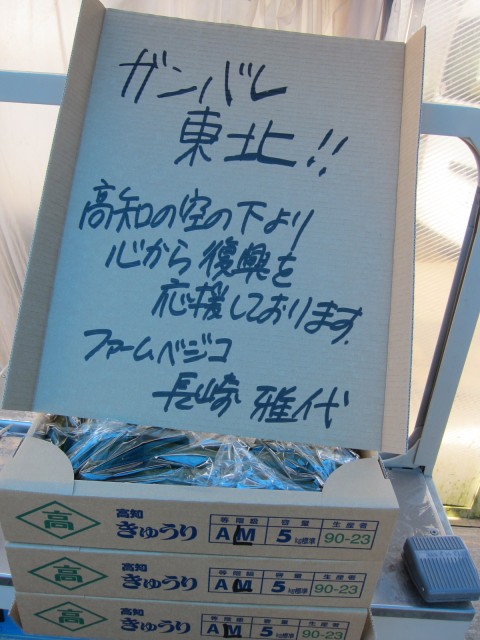 ガンバレ
東北!!
高知の空の下より
心から復興を
応援しております。
ファームベジコ
長崎 雅代
高
高知
きゅうり
等階級
容量
生産者
A M
5kg標準
90-23
高
高知
きゅうり
等階級
容量
生産者
A M
5kg標準
90-23
高
高知
きゅうり
等階級
容量
生産者
A M
5kg標準
90-23